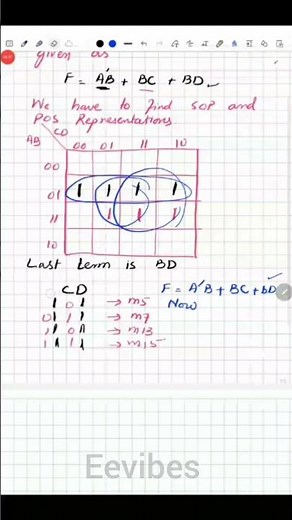 given as
F = A'B + BC + BD
We have to find SOP and
POS Representations
CD
AB
00 01 11 10
00
01 1 1 1 1
11 1 1 1
10
Last term is BD
CD
1 0 1 → m5
0 1 1 1 → m7
1 1 0 1 → m13
1 1 1 1 → m15
F = A'B + BC + BD
Now
Eevibes